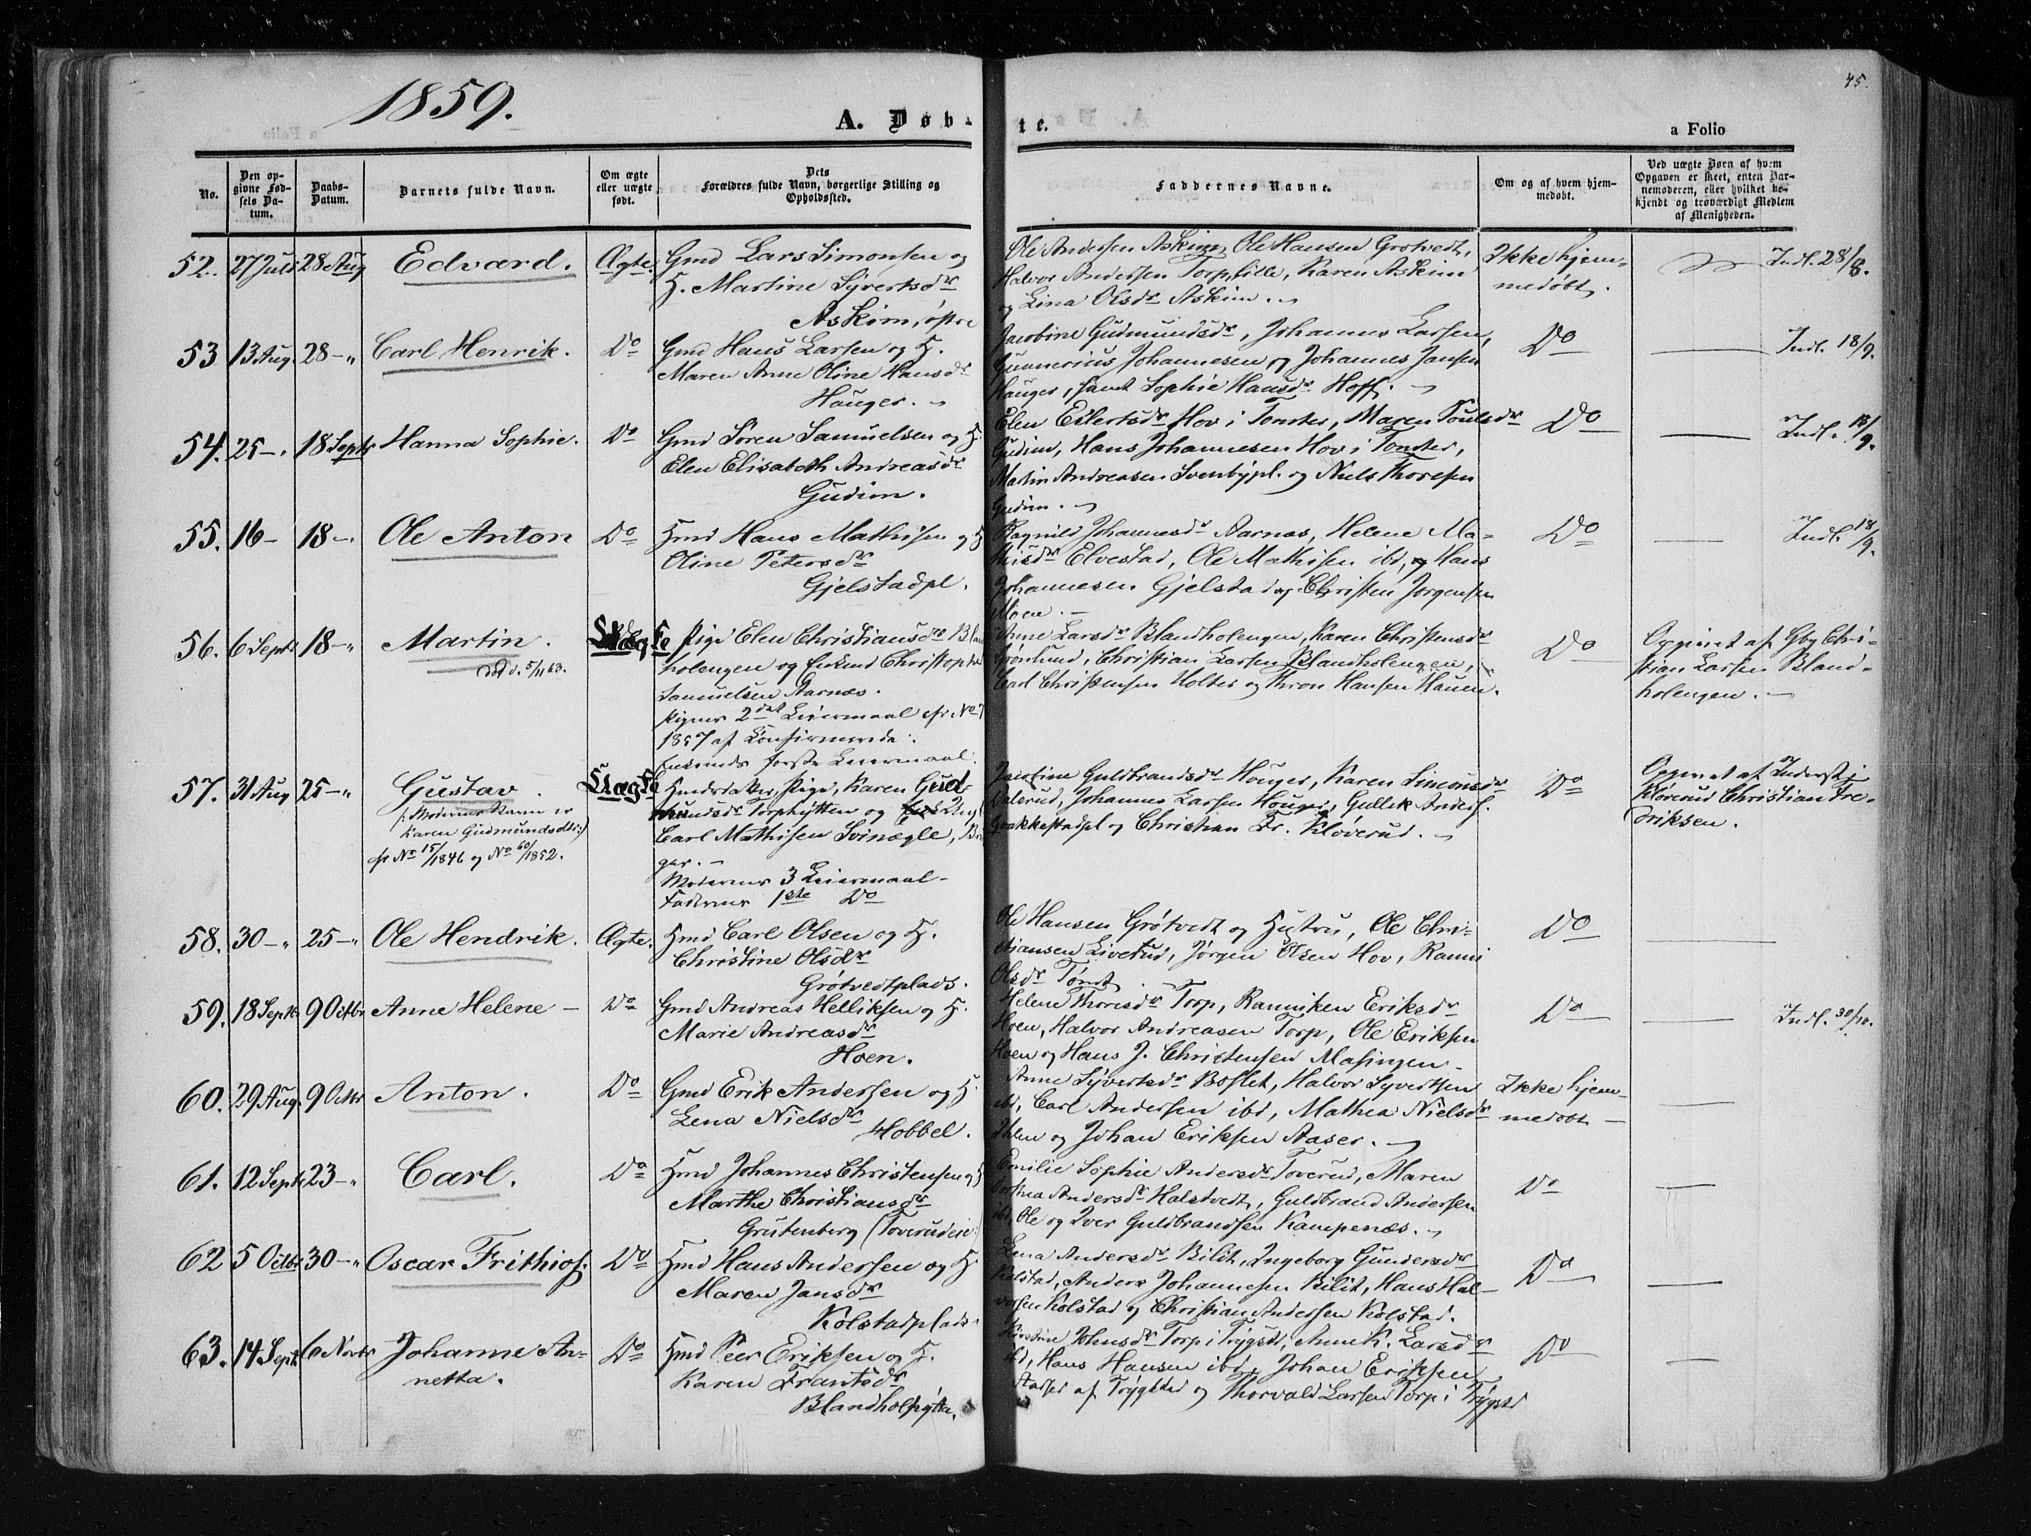 1859.
A. Døb-
te.
a Folio
45.
No.
Den op-
givne Fød-
sels Da-
tum.
Daabs-
Datum.
Barnets fulde Navn.
Om ægte
eller uægte
født.
Dets
Forældres fulde Navn, borgerlige Stilling og
Opholdssted.
Faddernes Navne.
Om og af hvem hjem-
medøbt.
Ved uægte Børn af hvem
Opgaven er skeet, enten Bar-
nemoderen, eller hvilket be-
kjendt og troværdigt Medlem
af Menigheden.
52. 27 Juli 28 Aug Edvard. Ægte. Gmd Lars Simonsen og
H. Martine Syvertsdr
Askim, øpre
Ole Andersen Askim, Ole Hansen Grøtvedt,
Halvor Andersen Torp lille, Karen Askim
og Lina Olsdr Askim.
Ikke hjem-
medøbt.
Indl. 28/8.
53 13 Aug 28 -" Carl Henrik. Do Gmd Hans Larsen og H.
Maren Anne Oline Hansdr
Hauger.
Jacobine Gudmundsdr, Johannes Larsen,
Gunnerius Johannesen og Johannes Jansen
Hauger, samt Sophie Hansdr Hoff.
Do
Indl. 18/9.
54. 25 -" 18 Septr Hanna Sophie. Do Gmd Søren Samuelsen og H.
Elen Elisabeth Andreasdr
Gudim.
Elen Eilertsdr Hov i Tomter, Maren Poulsdr
Gudim, Hans Johannesen Hov i Tomter,
Martin Andreasen Svenbypl. og Niels Thoresen
Gudim.
Do
Indl. 18/9.
55. 16 - 18 -" Ole Anton Do Hmd Hans Mathisen og H
Oline Petersdr
Gjelstadpl.
Ragnild Johannesdr Aarnæs, Helene Ma-
thisdr Elvestad, Ole Mathisen ibd, og Hans
Johannesen Gjelstad og Christen Jørgensen
Moen.
Do
Indl. 18/9.
56. 6 Septr 18 -" Martin. Uægte Pige Elen Christiansdr Bland
Død. 5/11 63.
holengen og Christopher
Samuelsen Aarnæs.
Pigens 2det Leiermaal cfr No 7
1857 af Konfirmerede.
første Leiermaal.
Anne Larsdr Blandholengen, Karen Christensdr
Grønlund, Christian Larsen Blandholengen,
Carl Christensen Holter og Thron Hansen Hauen.
Do
Opgivet af Gby Chri-
stian Larsen Bland-
holengen.
57. 31 Aug 25 -" Gustav. Uægte Inderstaker, Pige, Karen Gud-
(: Moderens Navn er
Karen Gudmundsdtr :)
cfr No 15/1846 og No 60/1852.
mundsdr Torphytten og Ungk
Carl Mathisen Svinægle, Bor
ger.
Moderens 3 Leiermaal
Faderens 1ste Do
Jacobine Guldbrandsdr Hauger, Karen Simonsdr
Valerud, Johannes Larsen Hauger, Gullik Anders.
Grakkestadpl og Christian Fr. Kløverud.
Do
Opgivet af Inderst i
Kløverud Christian Fre-
driksen.
58. 30 -" 25 -" Ole Hendrik. Ægte. Hmd Carl Olsen og H.
Christine Olsdr
Grøtvedtplads.
Ole Hansen Grøtvedt og Hustru, Ole Chri-
stiansen Liverud, Jørgen Olsen Hov, Ranni
Olsdr Tømt
Do
59. 18 Septr 9 Octbr Anne Helene - Do Gmd Andreas Helliksen og H.
Marie Andreasdr
Hoen.
Helene Thoresdr Torp, Ranniken Eriksdr
Hoen, Halvor Andreasen Torp, Ole Eriksen
Hoen og Hans J. Christensen Masingen
Do
Indl. 30/10.
60. 29 Aug. 9 Octbr Anton. Do Gmd Erik Andersen og H.
Lena Nielsdr
Hobbel.
Anne Syvertsdr Boslet, Halvor Syvertsen
ibd, Carl Andersen ibd, Mathea Nielsdr
Ihlen og Johan Eriksen Aaser.
Ikke hjem-
medøbt
61. 12 Septr 23 -" Carl. Do Hmd Johannes Christensen og H
Marthe Christiansdr
Grutenberg (Toverudeie)
Emilie Sophie Andersdr Toverud, Maren
Dorthea Andersdr Halstvedt, Guldbrand Andersen
ibd, Ole og Iver Guldbrandsen Kampenæs.
Do
62 5 Octbr 30 -" Oscar Frithiof. Do Hmd Hans Andersen og H.
Maren Jansdr
Kolstadplads.
Lena Andersdr Bilit, Ingeborg Gundersdr
Kolstad, Anders Johannesen Bilit, Hans Hal-
vorsen Kolstad og Christian Andersen Kolstad.
Do
63. 14 Septr 6 Novbr Johanne An-
netta.
Do Hmd Peer Eriksen og H.
Karen Frantsdr
Blandholhytta.
Kirstine Johnsdr Torp i Trygstd, Anne K. Larsdr
ibd, Hans Hansen ibd, Johan Eriksen
Aaser af Trygstad og Thorvald Larsen Torp i Trygst
Do